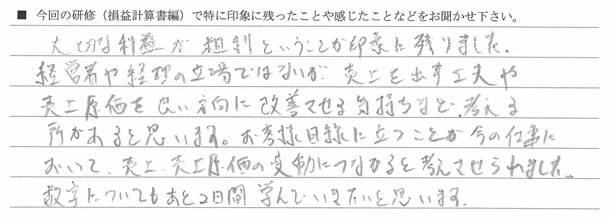 ■ 今回の研修（損益計算書編）で特に印象に残ったことや感じたことなどをお聞かせ下さい。
大切な利益が粗利ということが印象に残りました。
経営者や経理の立場ではないが、売上を出す工夫や
売上原価を良い方向に改善させる気持ちなど、考える
所があると思います。お客様目線に立つことが今の仕事に
おいて、売上、売上原価の変動につながると考えさせられました。
数字についてもあと2日間学んでいきたいと思います。